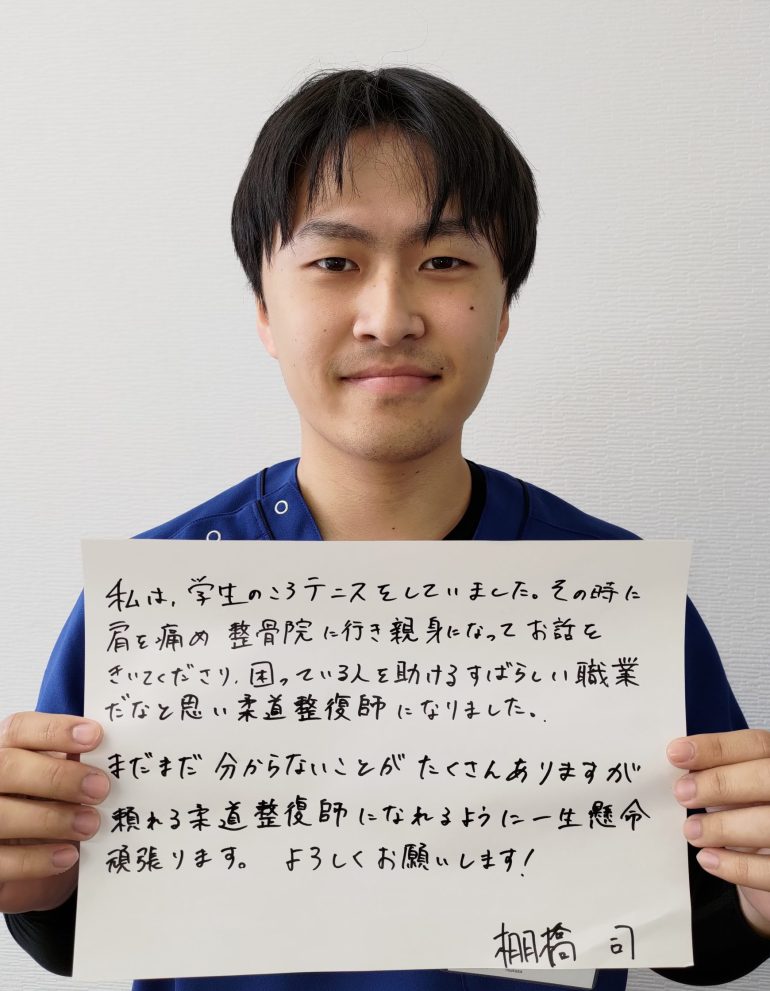 私は,学生のころテニスをしていました。その時に
肩を痛め 整骨院に行き親身になってお話を
きいてくださり,困っている人を助けるすばらしい職業
だなと思い柔道整復師になりました。
まだまだ 分からないことが たくさんありますが
頼れる柔道整復師になれるように一生懸命
頑張ります。 よろしくお願いします!
棚橋 司